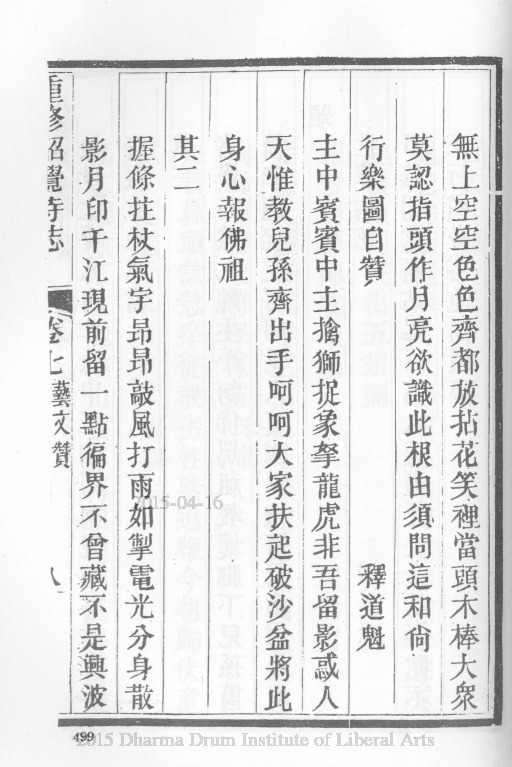 無上空空色色齊都放拈花笑裡當頭木棒大衆
莫認指頭作月亮欲識此根由須問這和尙
行樂圖自贊 釋道魁
主中賓賓中主擒獅捉象拏龍虎非吾留影惑人
天惟教兒孫齊出手呵呵大家扶起破沙盆將此
身心報佛祖
其二
握條拄杖氣宇昻昻敲風打雨如掣電光分身散
影月印千江現前留一點徧界不曾藏不是興波
重修昭覺寺志 卷七藝文贊 八
2015-04-16
499
2015 Dharma Drum Institute of Liberal Arts